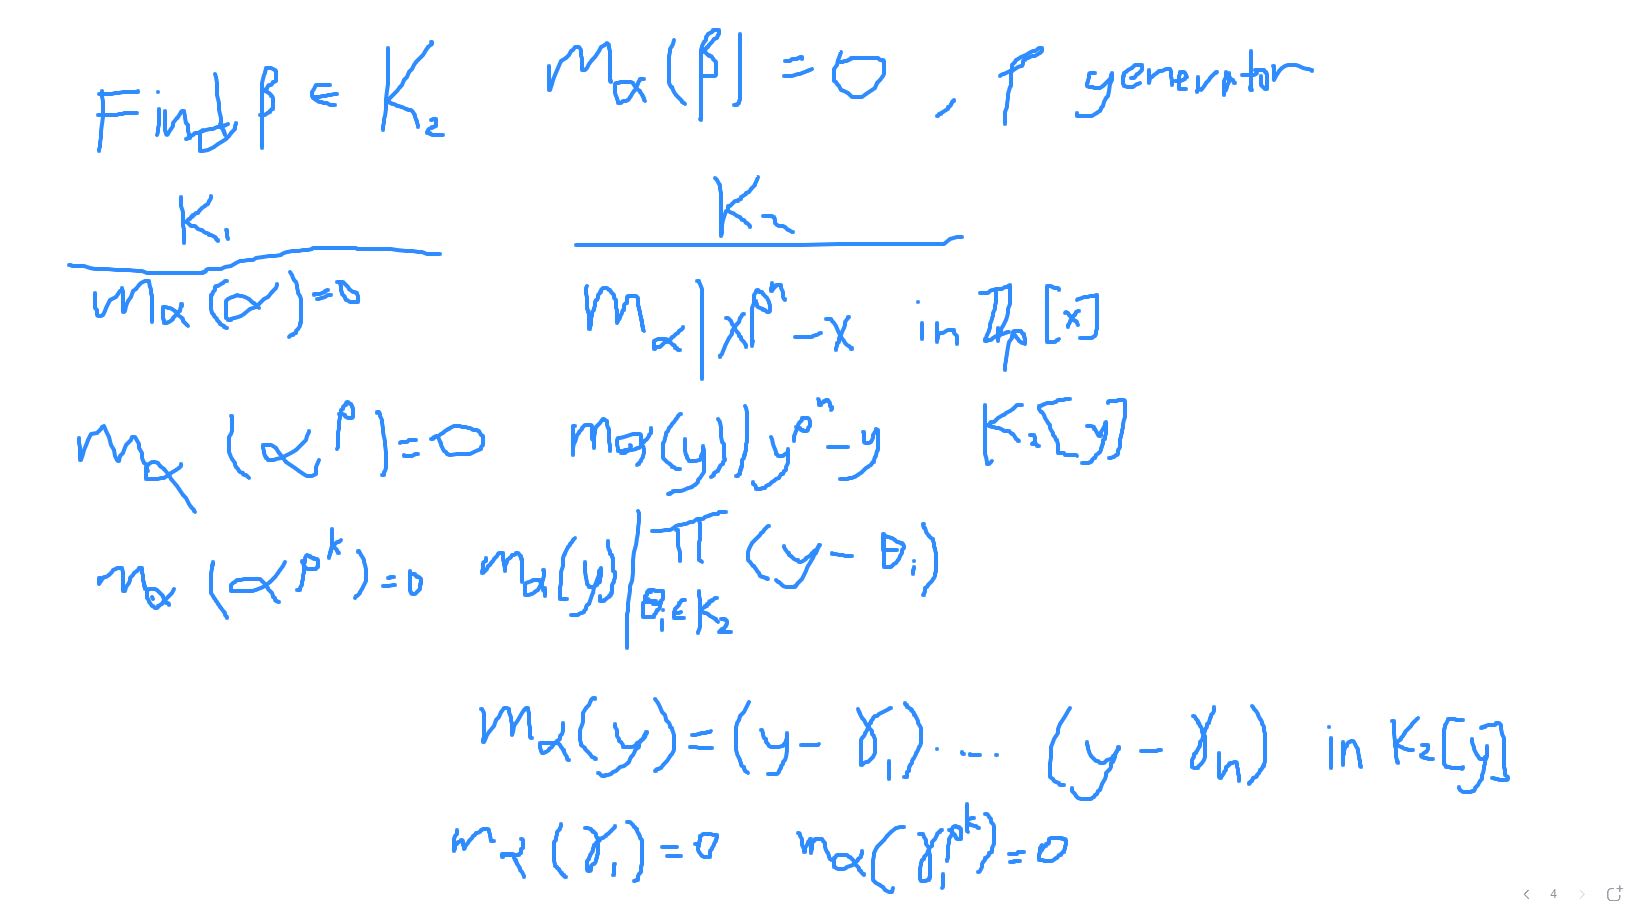 Find β ∈ K₂ m_α(β) = 0, β generator
K₁ K₂
m_α(α)=0 m_α | x^{pⁿ} − x in ℤ_p[x]
m_α(α^p)=0 m_α(y) | y^{pⁿ} − y K₂[y]
m_α(α^{p^k})=0 m_α(y) | ∏_{θᵢ∈K₂} (y − θᵢ)
m_α(y) = (y − γ₁) ..... (y − γₙ) in K₂[y]
m_α(γ₁) = 0 m_α(γ₁^{p^k}) = 0
4